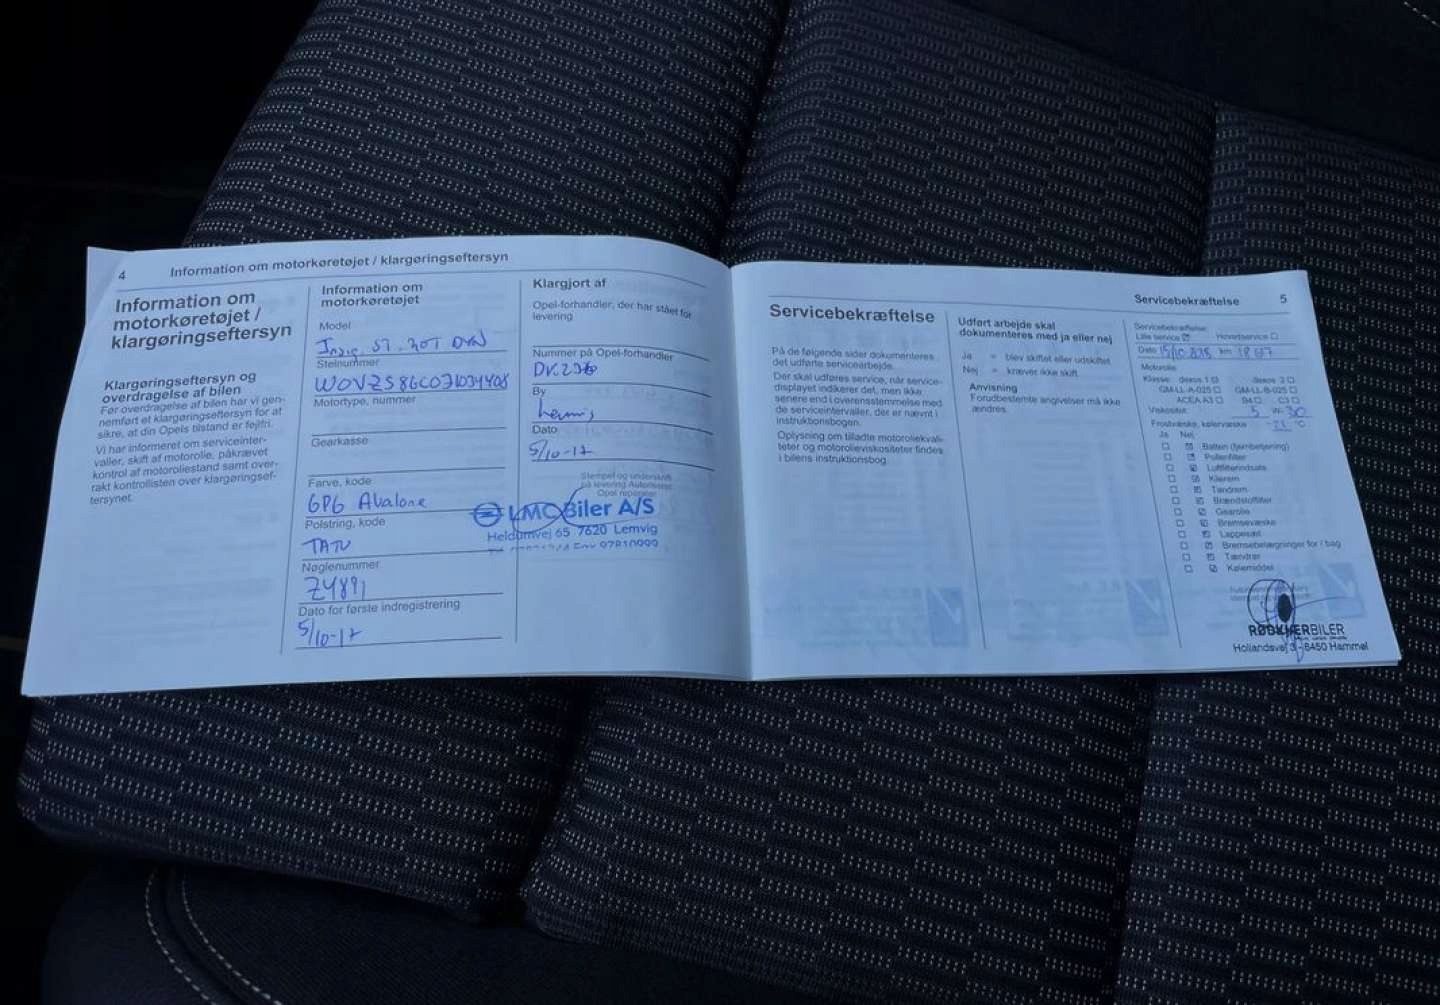 4 Information om motorkøretøjet / klargøringseftersyn
Information om
motorkøretøjet /
klargøringseftersyn
Klargøringseftersyn og
overdragelse af bilen
Før overdragelse af bilen har vi gen-
nemført et klargøringseftersyn for at
sikre, at din Opels tilstand er fejlfri.
Vi har informeret om serviceinter-
valler, skift af motorolie, påkrævet
kontrol af motoroliestand samt over-
rakt kontrollisten over klargøringsef-
tersynet.
Information om
motorkøretøjet
Model
Insig. ST. 20T DYN
Stelnummer
Motortype, nummer
Gearkasse
Farve, kode
GPG Avalone
Polstring, kode
TATU
Nøglenummer
Z4891
Dato for første indregistrering
5/10-17
Klargjort af
Opel-forhandler, der har stået for
levering
Nummer på Opel-forhandler
By
Lemvig
Dato
5/10-17
Stempel og underskrift
på levering Autoriseret
Opel reparatør
LMC Biler A/S
Heldumvej 65 7620 Lemvig
Servicebekræftelse 5
Servicebekræftelse
På de følgende sider dokumenteres
det udførte servicearbejde.
Der skal udføres service, når service-
displayet indikerer det, men ikke
senere end i overensstemmelse med
de serviceintervaller, der er nævnt i
instruktionsbogen.
Oplysning om tilladte motoroliekvali-
teter og motorolieviskositeter findes
i bilens instruktionsbog.
Udført arbejde skal
dokumenteres med ja eller nej
Ja = blev skiftet eller udskiftet
Nej = kræver ikke skift
Anvisning
Forudbestemte angivelser må ikke
ændres.
Servicebekræftelse:
Lille service Hovedservice
Dato 15/10 km
Motorolie:
Klasse: dexos 1 dexos 2
GM-LL-A-025 GM-LL-B-025
ACEA A3 B4 C3
Viskositet: 5 W- 30
Frostvæske, kølervæske °C
Ja Nej
Batteri (fjernbetjening)
Pollenfilter
Luftfilterindsats
Kilerem
Tandrem
Brændstoffilter
Gearolie
Bremsevæske
Lappesæt
Bremsebelægninger for / bag
Tændrør
Kølemiddel
RØDKJÆRBILER
Hollandsvej 3 - 8450 Hammel